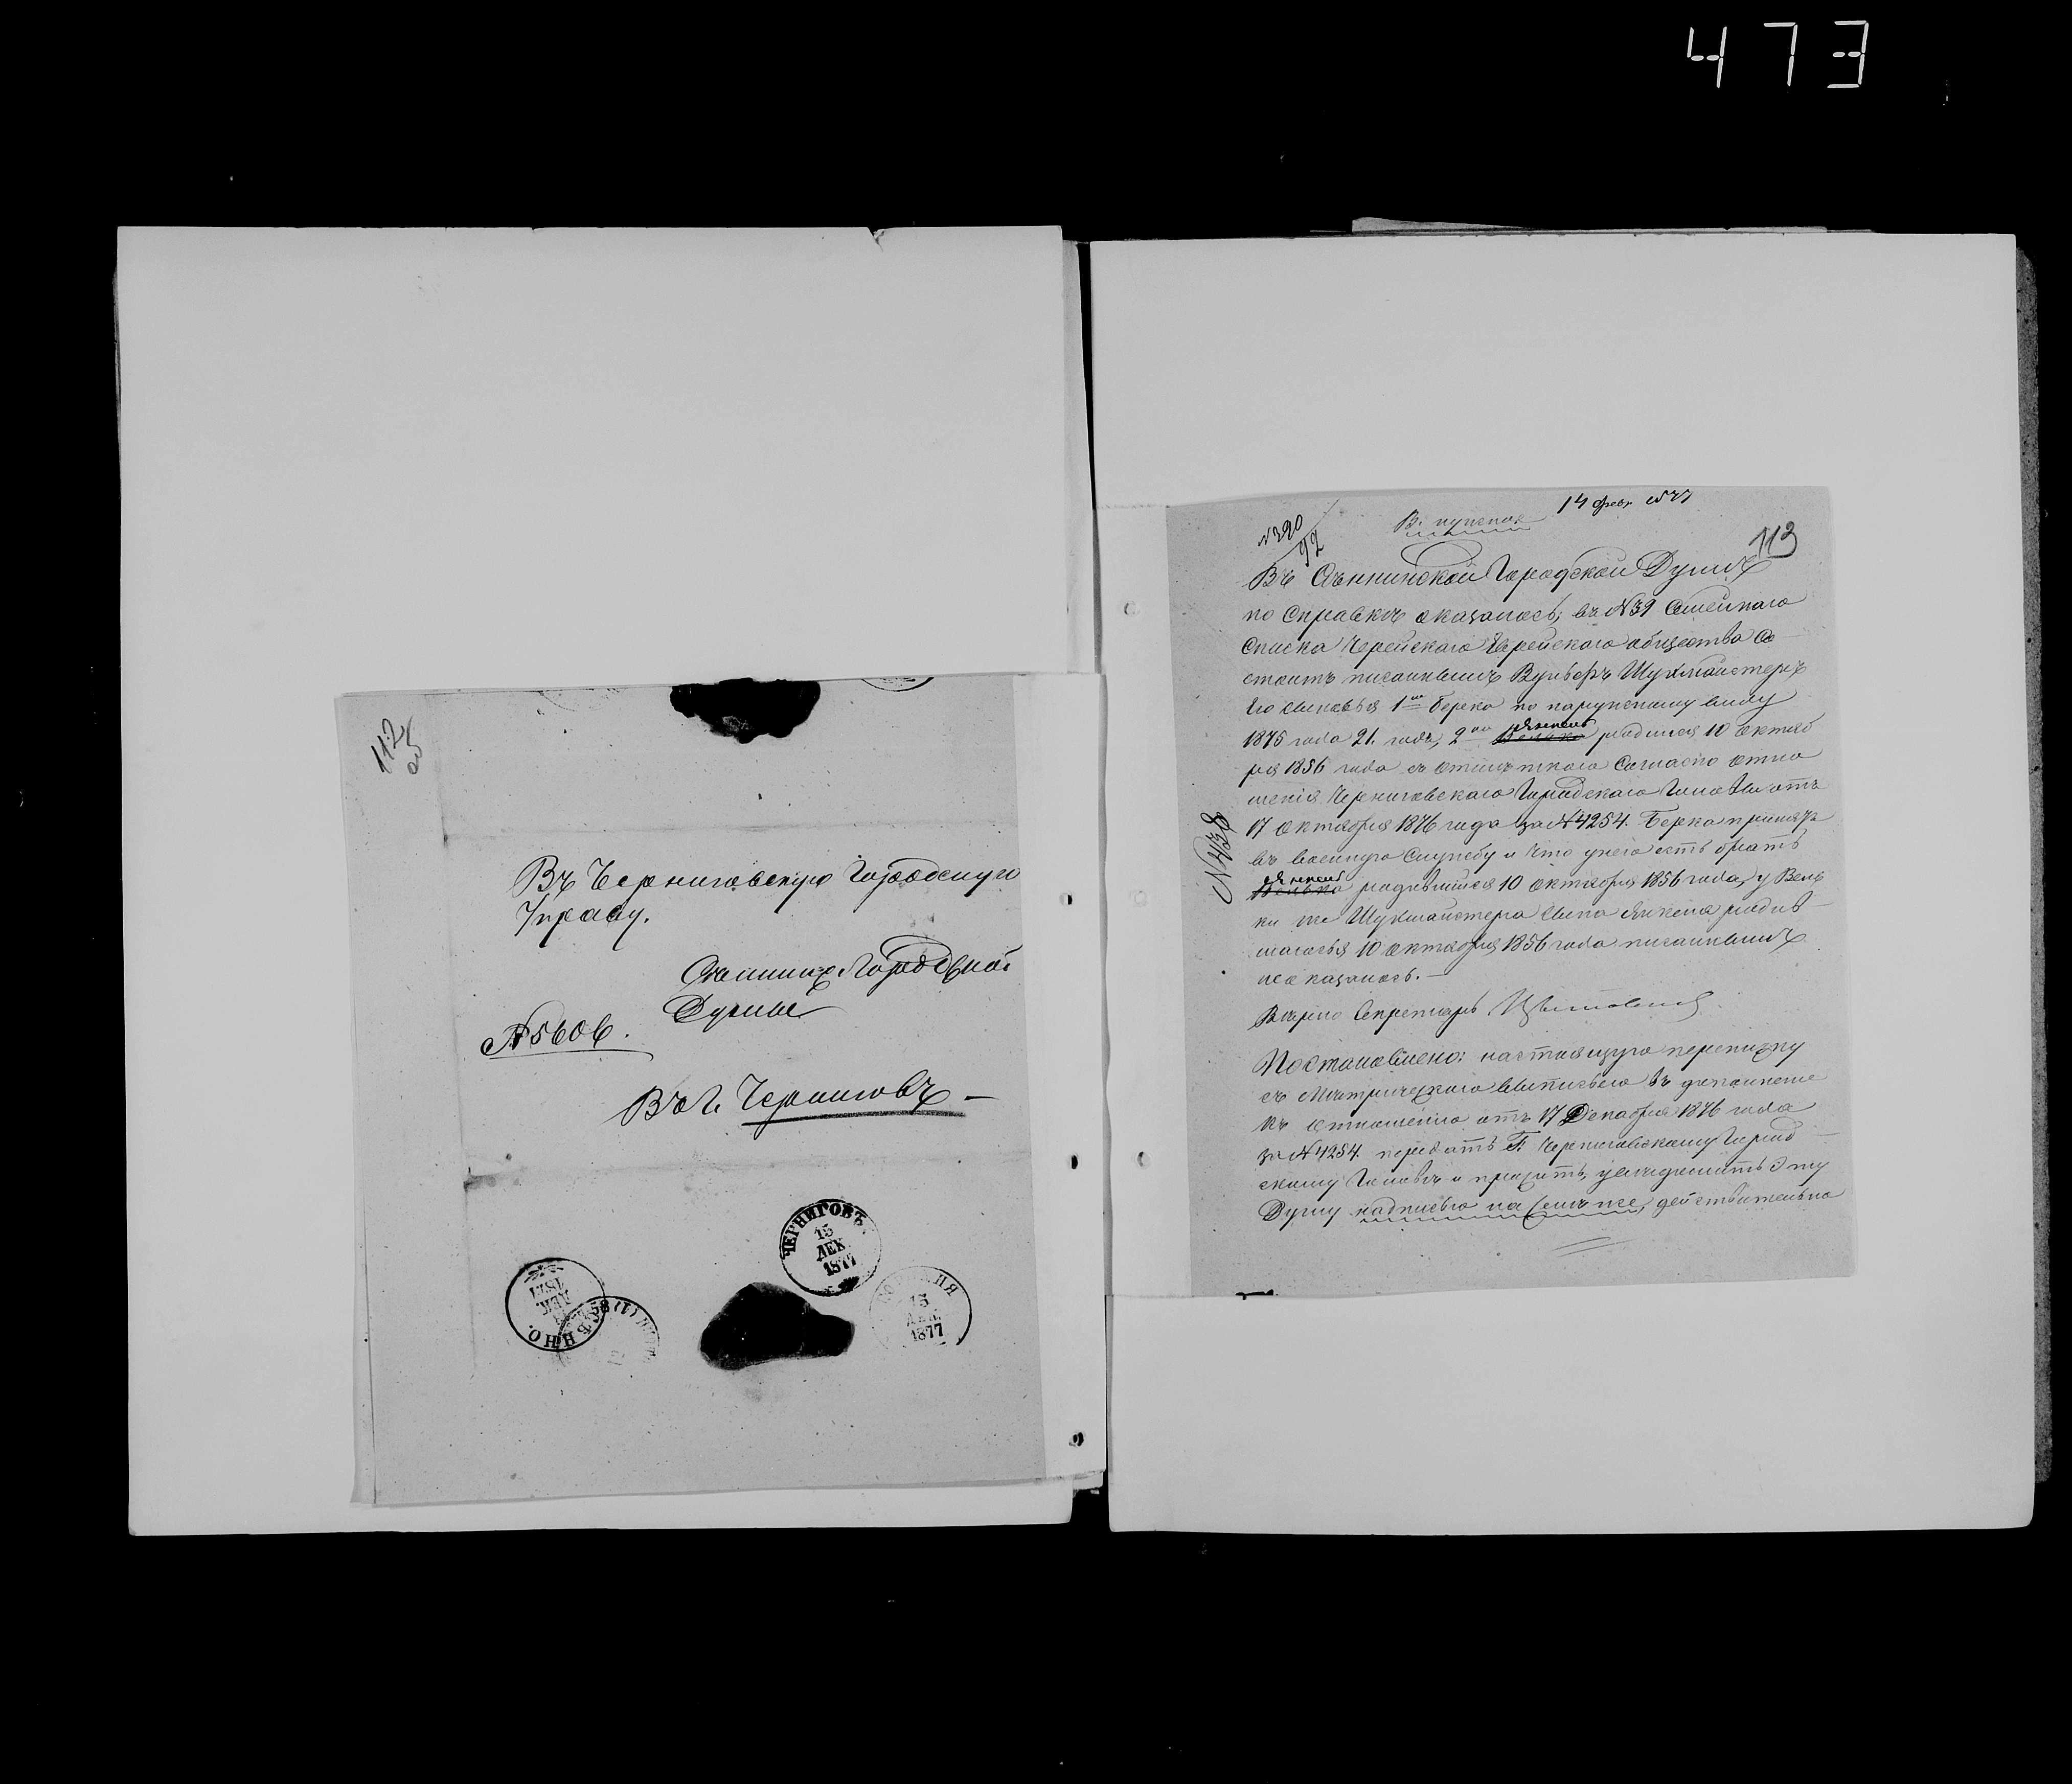 473
112
об
Въ Черниговскую Городскую
Управу.
Сѣннинск. Городской
Думы
№ 5606.
Въ г. Черниговъ —
ЧЕРНИГОВЪ
15
ДЕК.
1877
СѢННО.
ДЕК.
1877
13
ДЕК.
1877
14 февр. 1877
№ 390
92
113
Въ Сѣннинской Городской Думѣ
по справкѣ оказалось; въ №39 семейнаго
списка Черейскаго Еврейскаго общества со
стоитъ писаннымъ Вульфъ Шухмайстеръ
его сыновья 1ой Берка по наружному виду
1875 года 21. годъ, 2ой Янкель родился 10 октяб
ря 1856 года съ отцемъ согласно отно
шенія Черниговскаго Городскаго Головы отъ
17 октября 1876 года за №4254. Берка принятъ
въ военную службу и что у него есть братъ
Янкель
Велька родившійся 10 октября 1856 года, у Вель
ки же Шухмайстера сына Янкеля родив
шагося 10 октября 1856 года писаннымъ
не оказалось. —
№ 438
Вѣрно Секретарь
Постановлено: настоящую переписку
съ метрическою выписью въ дополненіе
къ отношенію отъ 17 Декабря 1876 года
за №4254. передать Г. Черниговскому Город
скому Головѣ и просить, увѣдомить эту
Думу надписью на семъ же, действительно